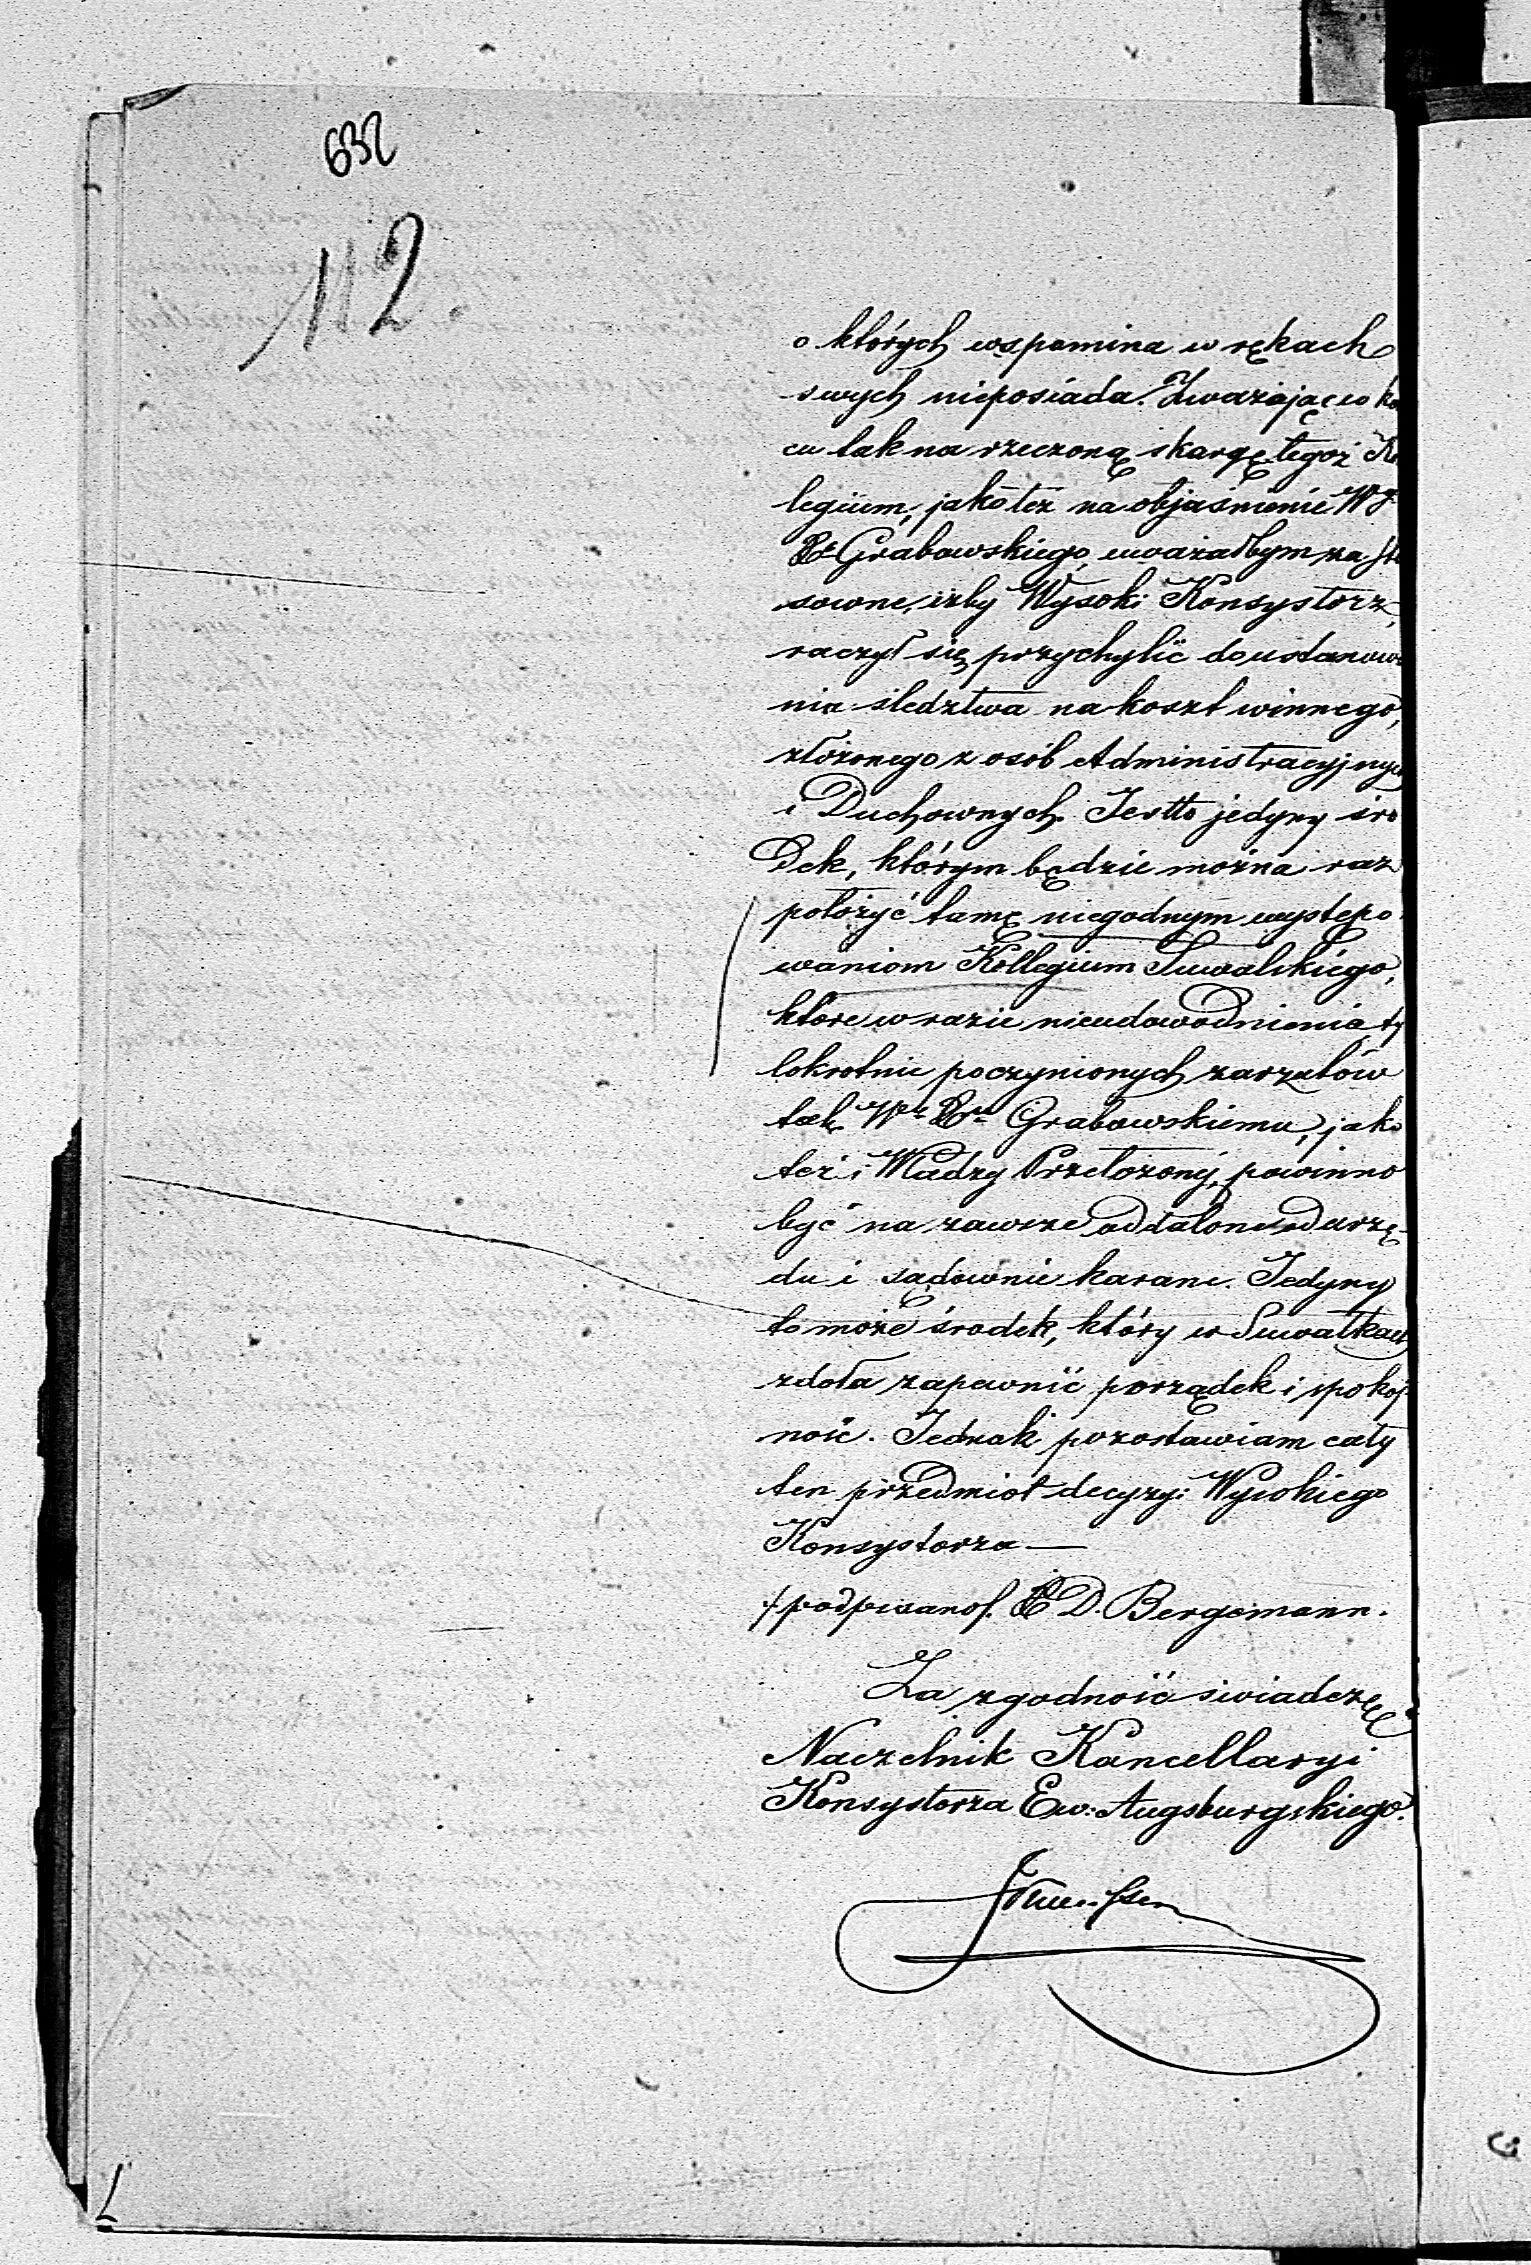 632
112.
o których wspomina w rękach
swych nieposiada. Zważając w ko
cu tak na rzeczoną skargę tegoż Ko
legium, jakoteż na objaśnienie Wgo
Xa Grabowskiego, uważałbym za sto
sowne, iżby Wysoki Konsystorz,
raczył się przychylić do ustanowie
nia śledztwa na koszt winnego,
złożonego z osób Administracyjnych
i Duchownych. Jestto jedyny śro
dek, którym będzie można raz
położyć tamę niegodnym wystepo-
waniom Kollegium Suwalskiego,
które w razie nieudowodnienia ty
lokrotnie poczynionych zarzutów
tak Wu Xu Grabowskiemu, jako
też i Władzy Przełożonéj, powinno
być na zawsze oddalone od urzę-
du i sądownie karane. Jedyny
to może środek, który w Suwałkach
zdoła zapewnić porządek i spokoj
ność. Jednak pozostawiam cały
ten przedmiot decyzyi Wysokiego
Konsystorza —
/podpisano/. X D. Bergemann.
Za zgodność świadczę
Naczelnik Kancellaryi
Konsystorza Ew: Augsburgskiego.